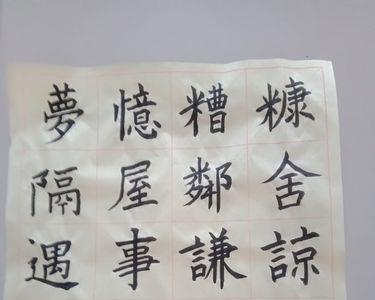 夢憶糟糠
隔屋鄰舍
遇事謙諒